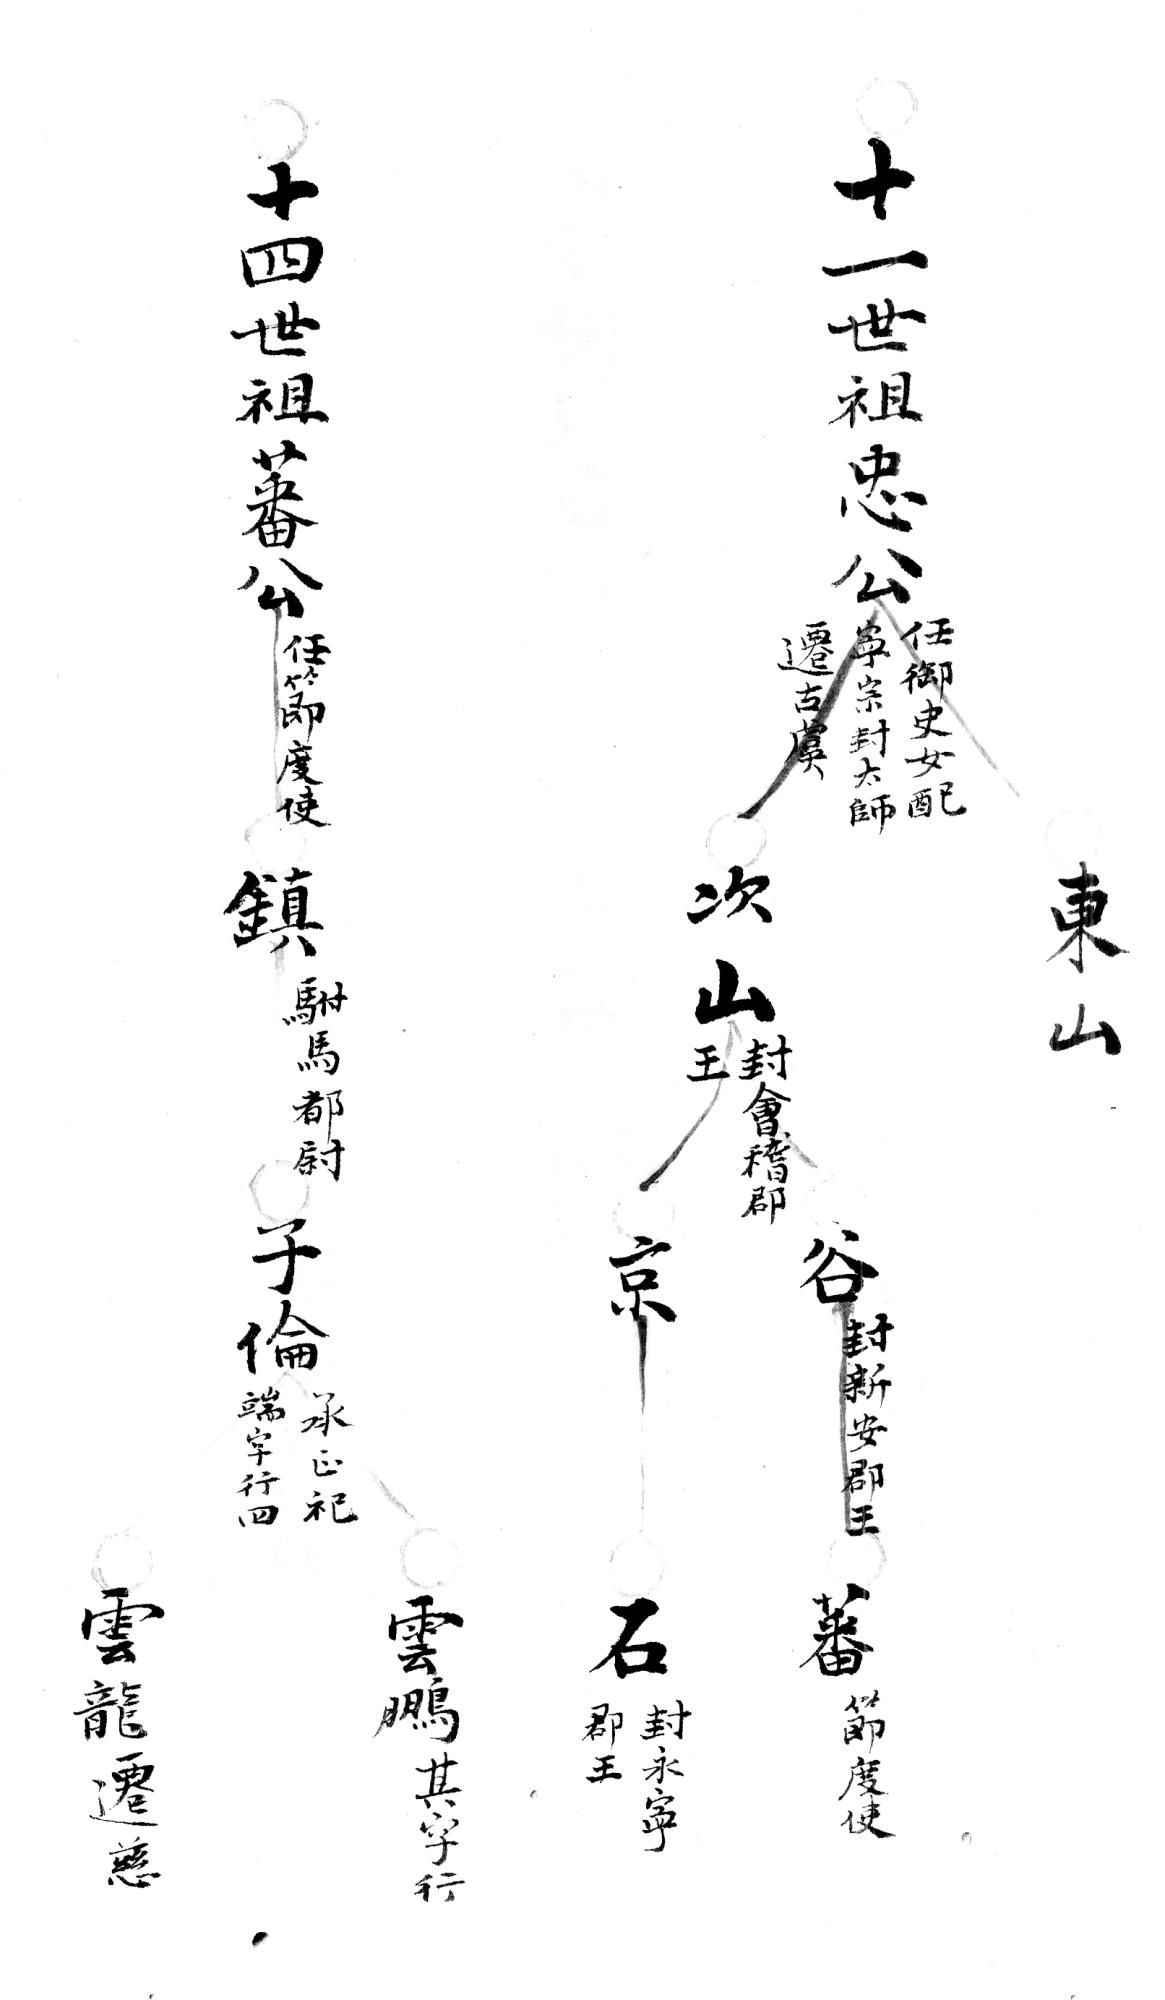 十一世祖忠公
任御史女配
寧宗封太師
遷古虞
東山
次山
封會稽郡
王
谷
封新安郡王
蕃
節度使
京
石
封永寧
郡王
十四世祖蕃公
任節度使
鎮
駙馬都尉
子倫
承正祀
端字行四
雲鵬其字行
雲龍遷慈